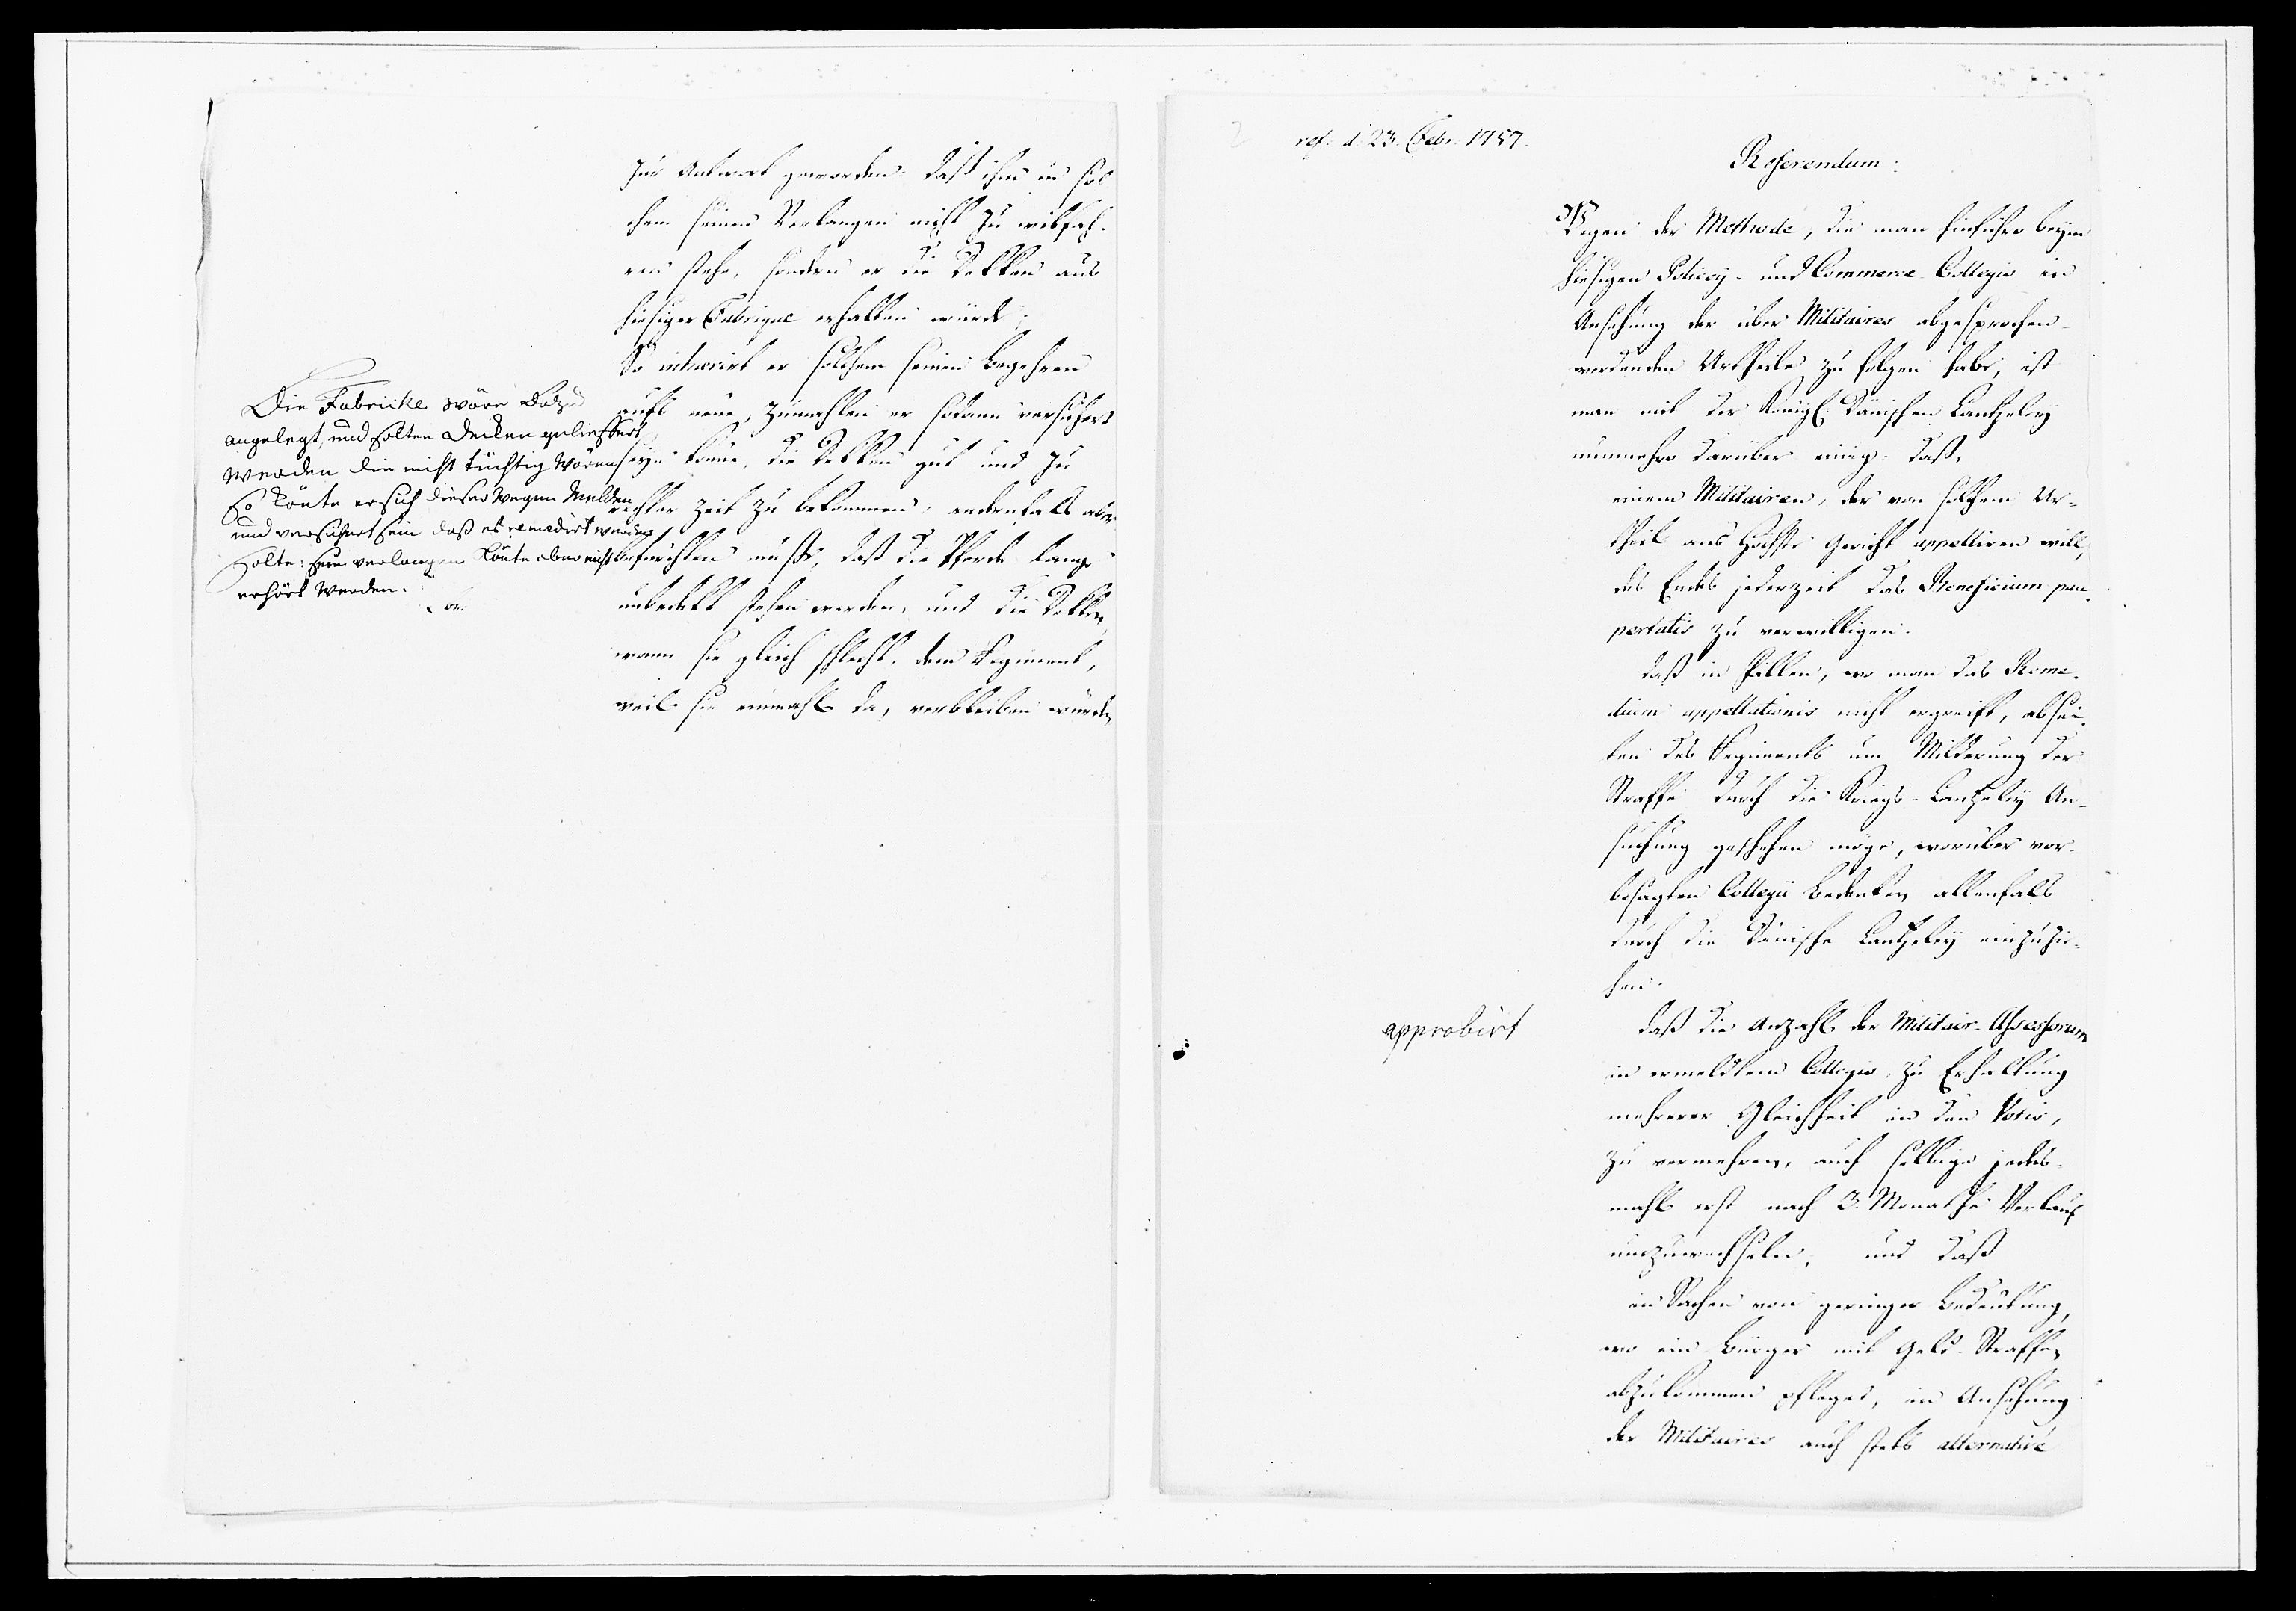 zur Antwort geworden: daß ihm in sol
chem seinem Verlangen nicht zu wilfah-
ren stehe, sondern er die Dekken aus
hiesiger Fabrique erhalten würde;
So inhærirt er solchem seinen Begehren
aufs neue, zumahlen er sodann versichert
seyn könne, die Dekken gut und zu
rechter Zeit zu bekommen, andernfalls aber
befürchten müste, daß die Pferde lange
unbedekt stehen werden, und die Dekken,
wann sie gleich schlecht, dem Regiment,
weil sie einmahl da, verbleiben würden
Die Fabricke wäre dazu
angelegt, und solten Decken geliessert
werden die nicht tüchtig wären
so könte er sich dieserwegen melden
und versichert sein daß es remedirt werden
solte: sein verlangen könte aber nicht
erhört werden.
2
ref. d. 23. Febr. 1757.
Referendum:
Wegen der Methode, die man hinführo beym
hiesigen Policey- und Commerce-Collegio in
Ansehung der über Militaires abgesprochen-
werdenden Urtheile zu folgen habe, ist
man mit der Königl. Dänischen Cantzeley
nunmehro darüber einig: daß,
einem Militairen, der von solchem Ur-
theil ans Höchste Gericht appelliren will,
des Endes jederzeit das Beneficium pau-
pertatis zu verwilligen.
daß in Fällen, wo man das Reme-
dium appellationis nicht ergreift, absei-
ten des Regiments um Milderung der
Straffe durch die Kriegs-Cantzeley An-
suchung geschehen möge, worüber vor-
besagten Collegii Bedenken allenfalls
durch die Dänische Cantzeley einzuzie-
hen.
daß die Anzahl der Militair-Assessorum
in ermeldtem Collegio, zu Erhaltung
mehrerer Gleichheit in den Votis,
zu vermehren, auch selbige jedes-
mahl erst nach 3. Monathe Verlauf
umzuwechseln, und daß
in Sachen von geringer Bedeutung,
wo ein Bürger mit Geld-Straffen
abzukommen pfleget, in Ansehung
der Militaires auch stets alternative
approbirt